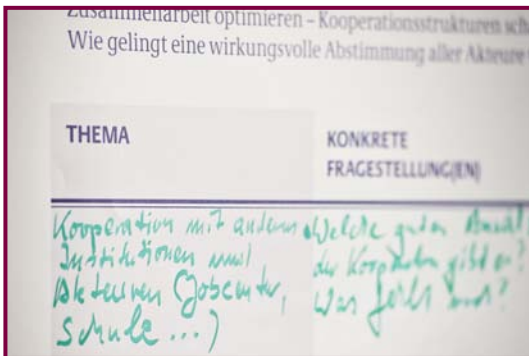 Zusammenarbeit optimieren – Kooperationsstrukturen
Wie gelingt eine wirkungsvolle Abstimmung aller Akteure
THEMA
KONKRETE
FRAGESTELLUNG(EN)
Kooperation mit anderen
Institutionen und
Akteuren (Jobcenter,
Schule ...)
Welche guten
der Kooperation gibt es?
Was fehlt uns?